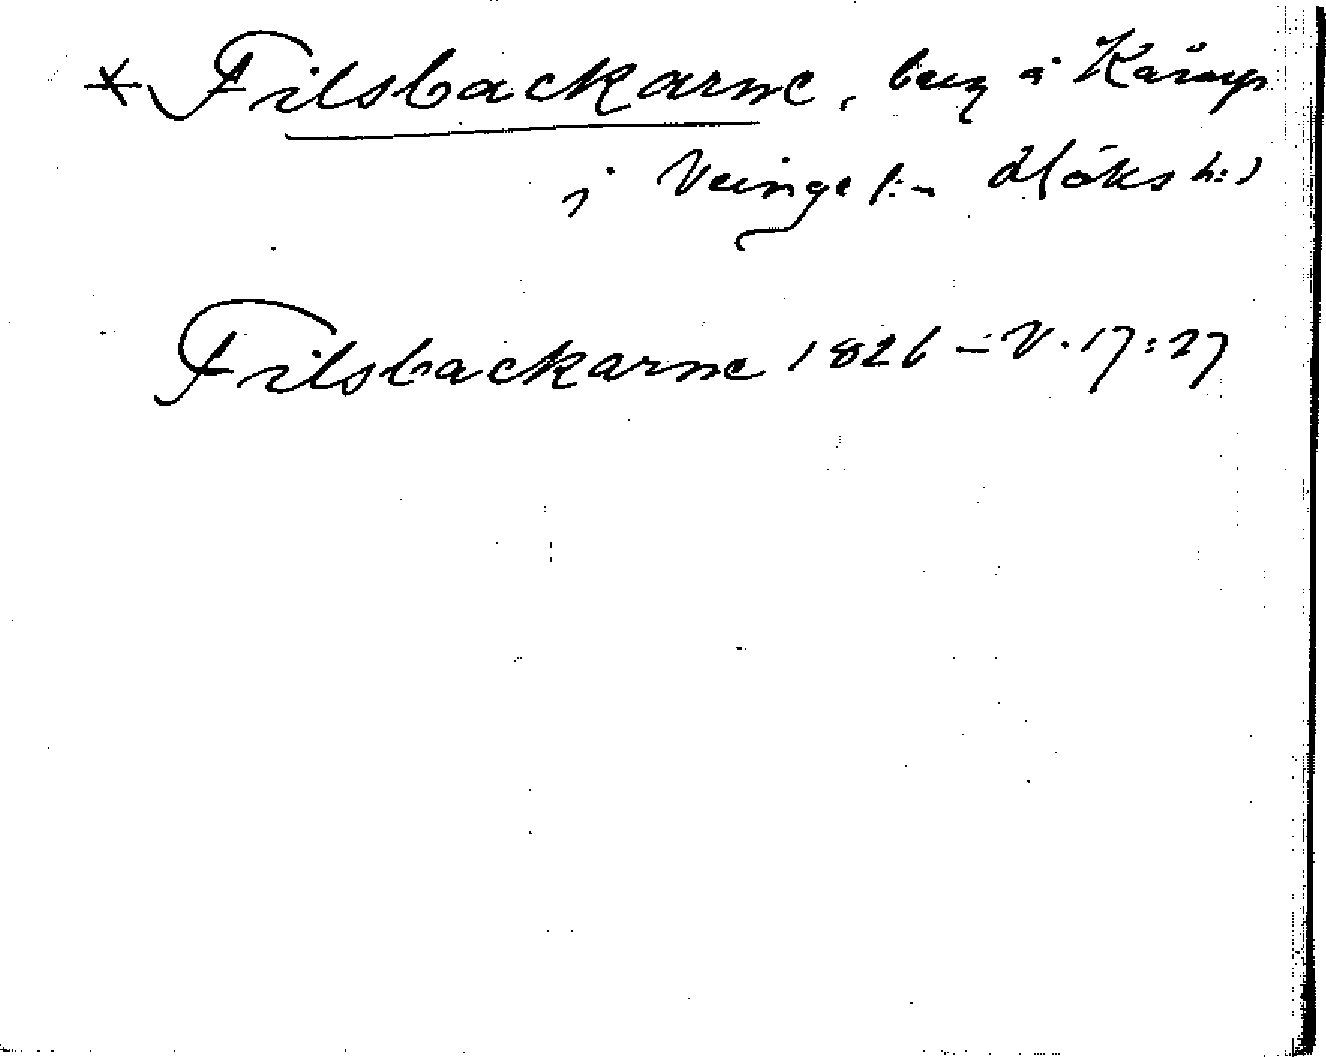 * Filsbackarne, berg å Kårarp
i Veinge s:n Höks h:d
Filsbackarne 1826 – V. 17:27